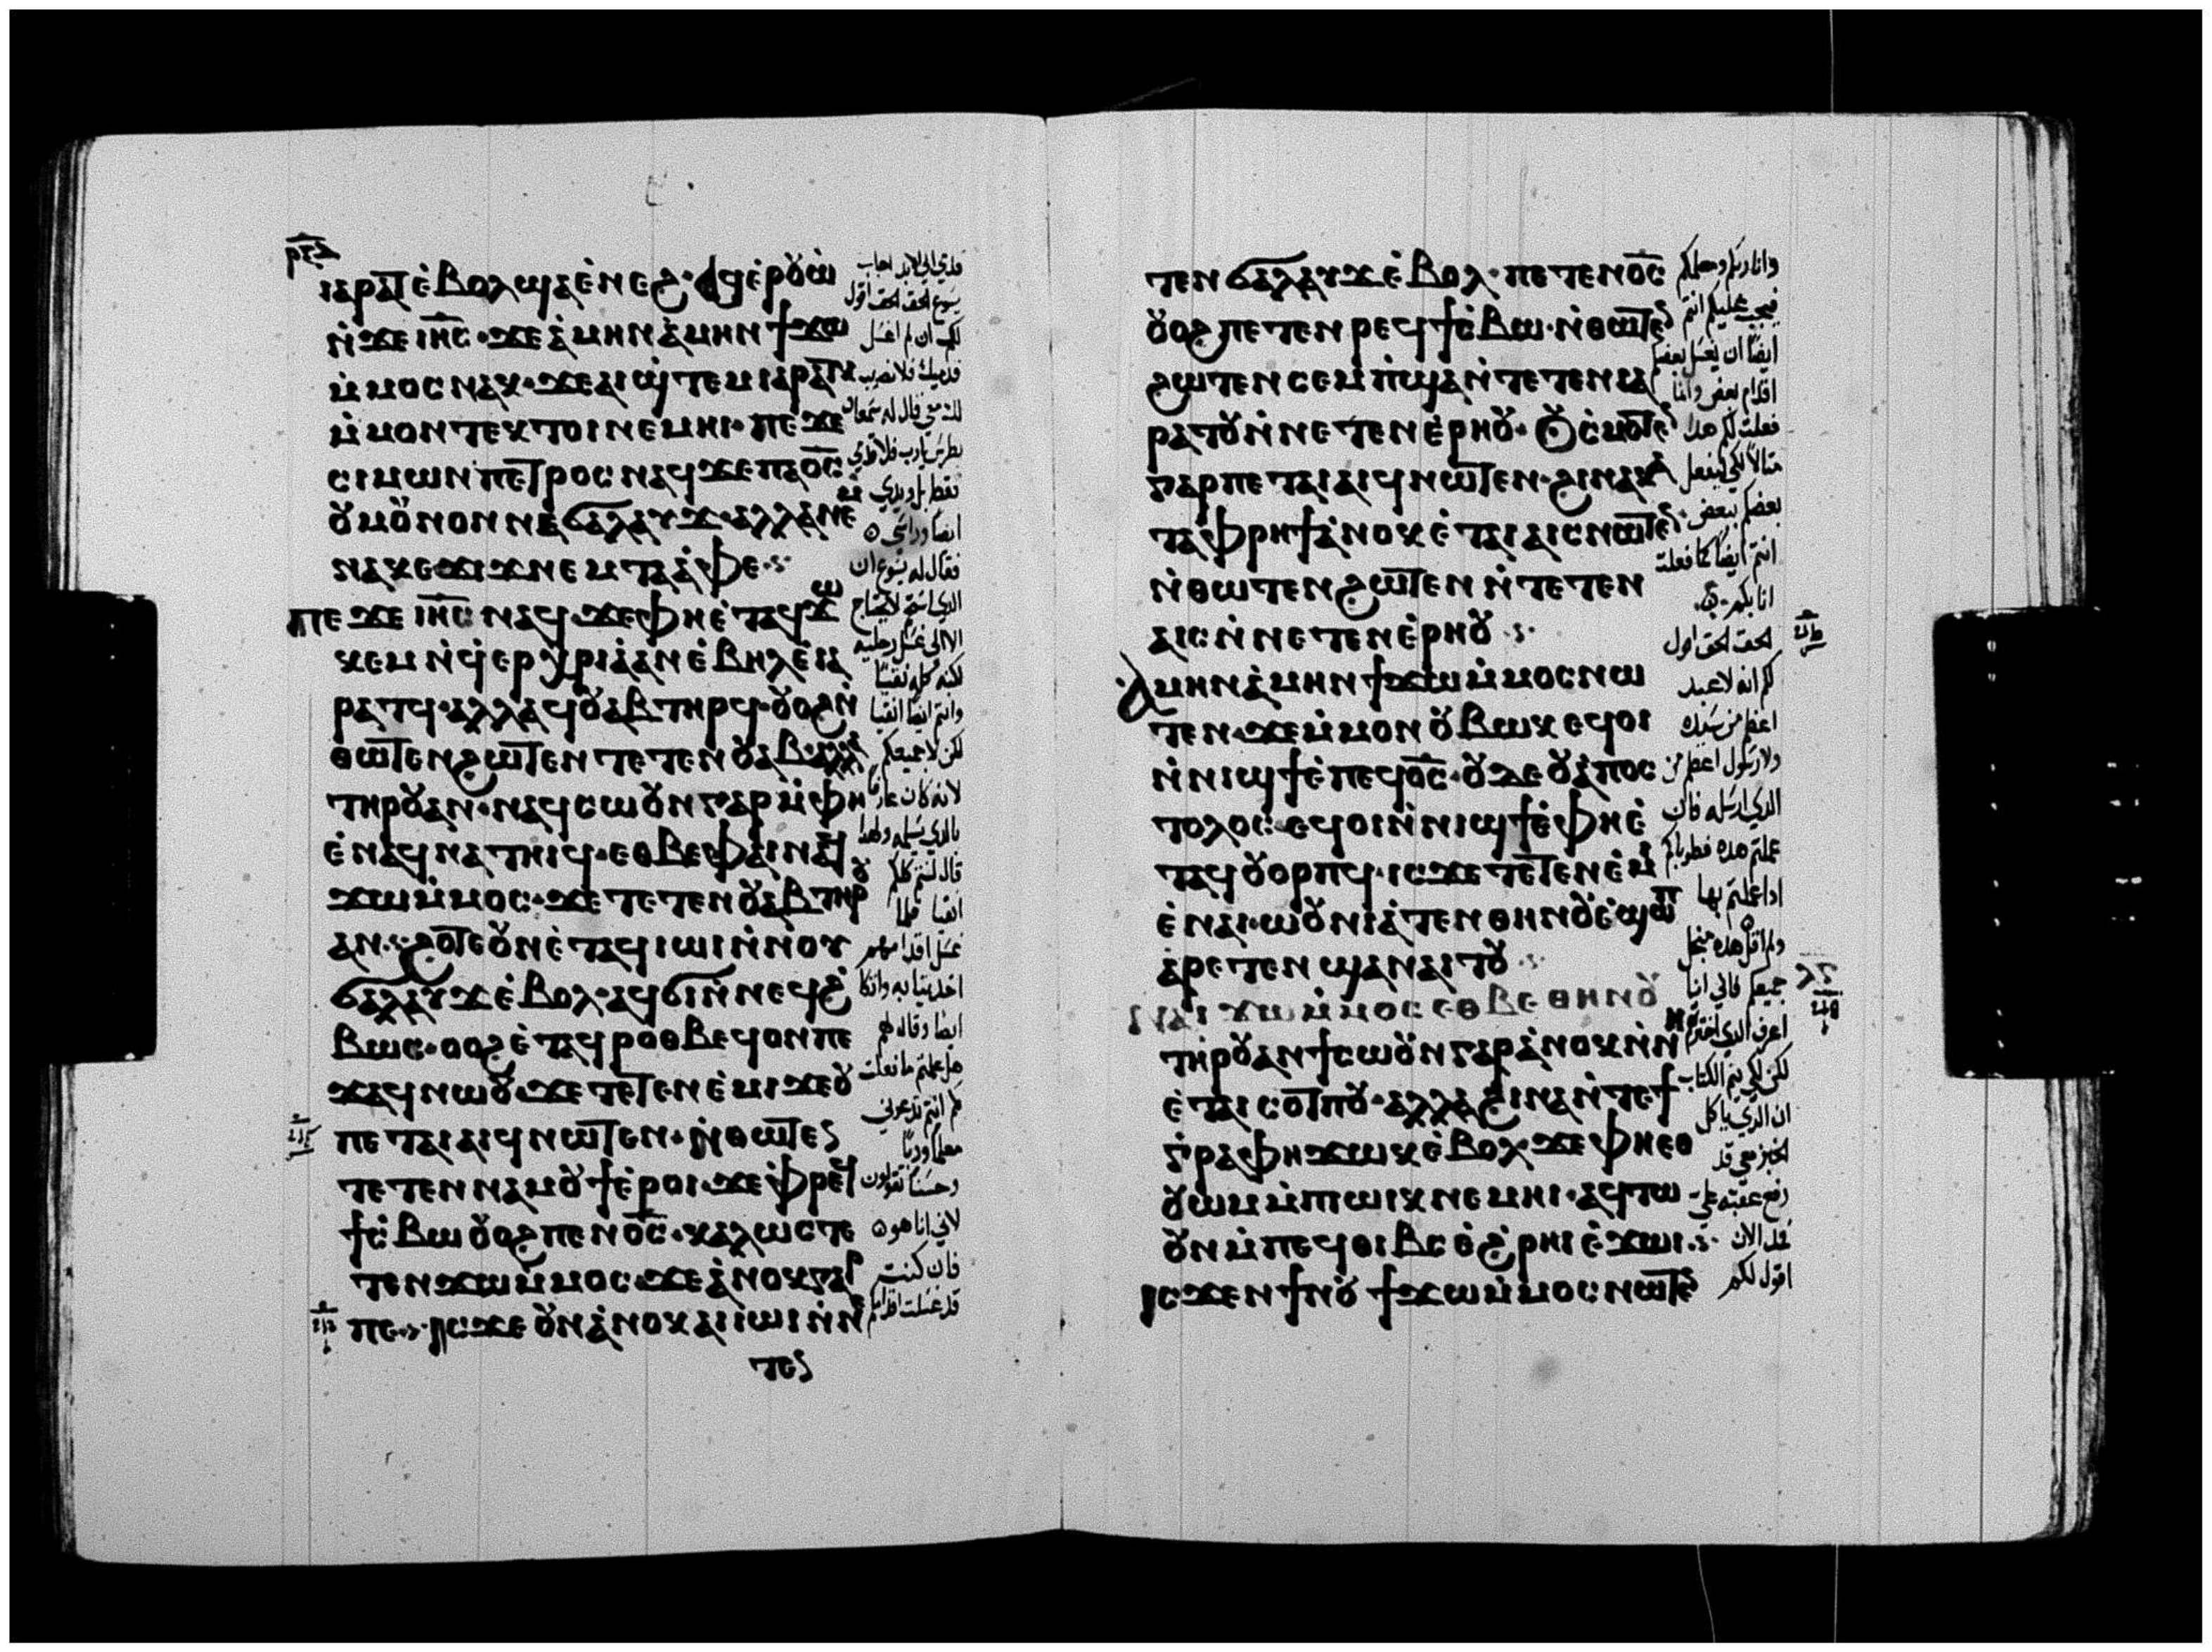 ⲓⲁⲣⲁⲧ ⲉ̀ⲃⲟⲗ ϣⲁⲉ̀ⲛⲉϩ · ⲁϥⲉ̀ⲣⲟⲩⲱ̀
ⲛ̀ϫⲉ ⲓⲏ̅ⲥ̅ · ϫⲉ ⲁ̀ⲙⲏⲛ ⲁ̀ⲙⲏⲛ ϯϫⲱ
ⲙ̀ⲙⲟⲥ ⲛⲁⲕ · ϫⲉ ⲁⲓϣ̀ⲧⲉⲙⲓⲁⲣⲁⲧⲕ
ⲙ̀ⲙⲟⲛⲧⲉⲕ ⲧⲟⲓ ⲛⲉⲙⲏⲓ · ⲡⲉϫⲉ
ⲥⲓⲙⲱⲛ ⲡⲉⲧⲣⲟⲥ ⲛⲁϥ ϫⲉ ⲡⲁⲟ̅ⲥ̅
ⲟⲩ ⲙⲟⲛⲟⲛ ⲛⲉϭⲁⲗⲁⲩϫ · ⲁⲗⲗⲁ ⲛⲉⲙ
ⲛⲁⲕⲉϫⲓϫ ⲛⲉⲙ ⲧⲁⲁ̀ⲫⲉ
ⲡⲉϫⲉ ⲓⲏ̅ⲥ̅ ⲛⲁϥ · ϫⲉ ⲫⲏ ⲉ̀ⲧⲁϥϫⲱ
ⲕⲉⲙ ⲛ̀ϥ̀ⲉⲣⲭⲣⲓⲁ ⲁⲛ ⲉ̀ⲃⲏⲗ ⲉ̀ⲓⲁ
ⲣⲁⲧϥ · ⲁⲗⲗⲁ ϥⲟⲩⲁⲃ ⲧⲏⲣϥ · ⲟⲩⲟϩ ⲛ̀
ⲑⲱⲧⲉⲛ ϩⲱⲧⲉⲛ ⲧⲉⲧⲉⲛⲟⲩⲁⲃ · ⲁⲗⲗⲁ
ⲧⲏⲣⲟⲩ ⲁⲛ · ⲛⲁϥⲥⲱⲟⲩⲛ ⲅⲁⲣ ⲙ̀ⲫⲏ
ⲉ̀ⲛⲁϥⲛⲁⲧⲏⲓϥ · ⲉⲑⲃⲉ ⲫⲁⲓ ⲛⲁϥ
ϫⲱ ⲙ̀ⲙⲟⲥ · ϫⲉ ⲧⲉⲧⲉⲛⲟⲩⲁⲃ ⲧⲏⲣⲟⲩ
ⲁⲛ · ϩⲟⲧⲉ ⲟⲩⲛ ⲉ̀ⲧⲁϥⲓⲱⲓ ⲛ̀ⲛⲟⲩ
ϭⲁⲗⲁⲩϫ ⲉ̀ⲃⲟⲗ · ⲁϥϭⲓ ⲛ̀ⲛⲉϥϩ̀
ⲃⲱⲥ · ⲟⲟϩ ⲉ̀ⲧⲁϥⲣⲟⲑⲃⲉϥ ⲟⲛ ⲡⲉ
ϫⲁϥ ⲛⲱⲟⲩ · ϫⲉ ⲧⲉⲧⲉⲛⲉ̀ⲙⲓ ϫⲉ ⲟⲩ
ⲡⲉⲧⲁⲓⲁⲓϥ ⲛⲱⲧⲉⲛ · ⲛ̀ⲑⲱⲧⲉⲛ
ⲧⲉⲧⲉⲛⲛⲁⲙⲟⲩϯ ⲉ̀ⲣⲟⲓ · ϫⲉ ⲫ̀ⲣⲉϥ
ϯⲥ̀ⲃⲱ ⲟⲩⲟϩ ⲡⲉⲛⲟ̅ⲥ̅ · ⲕⲁⲗⲱⲥ ⲧⲉ
ⲧⲉⲛϫⲱ ⲙ̀ⲙⲟⲥ · ϫⲉ ⲁ̀ⲛⲟⲕ ⲅⲁⲣ
ⲡⲉ · ⲓⲥϫⲉ ⲟⲩⲛ ⲁ̀ⲛⲟⲕ ⲁⲓⲓⲱⲓ ⲛ̀ⲛⲉ
ⲧⲉⲛ
قدمي الى الابد اجاب
يسوع الحق الحق اقول
لك ان لم اغسل
قدميك فلا نصيب
لك معي قال له سمعان
بطرس يارب فلا قدمي
فقط بل ويدي
ايضا وراسي
فقال له يسوع ان
الذي استحم لا يحتاج
الا الى غسل رجليه
لكنه كله نقيا
وانتم ايضا انقيا
لكن لا جميعكم
لانه كان عارفا
بالذي يسلمه ولهذا
قال لستم كلكم
انقيا فلما
غسل اقدامهم
اخذ ثيابه واتكا
ايضا وقال لهم
هل علمتم ما فعلت
لكم انتم تدعوني
معلما وربا
وحسنا تقولون
لاني انا هو
فان كنت
قد غسلت اقدامكم
ⲧⲉⲛϭⲁⲗⲁⲩϫ ⲉ̀ⲃⲟⲗ · ⲡⲉⲧⲉⲛⲟ̅ⲥ̅
ⲟⲩⲟϩ ⲡⲉⲧⲉⲛⲣⲉϥϯⲥ̀ⲃⲱ · ⲛ̀ⲑⲱⲧⲉⲛ
ϩⲱⲧⲉⲛ ⲥⲉⲙ̀ⲡϣⲁ ⲛ̀ⲧⲉⲧⲉⲛⲓⲁ
ⲣⲁⲧⲟⲩ ⲛ̀ⲛⲉⲧⲉⲛⲉ̀ⲣⲏⲟⲩ · ⲟⲩⲥ̀ⲙⲟⲧ
ⲅⲁⲣ ⲡⲉⲧⲁⲓⲁⲓϥ ⲛⲱⲧⲉⲛ · ϩⲓⲛⲁ ⲕⲁ
ⲧⲁ ⲫⲣⲏϯ ⲁ̀ⲛⲟⲕ ⲉ̀ⲧⲁⲓⲁⲓⲥ ⲛⲱⲧⲉⲛ
ⲛ̀ⲑⲱⲧⲉⲛ ϩⲱⲧⲉⲛ ⲛ̀ⲧⲉⲧⲉⲛ
ⲁⲓⲥ ⲛ̀ⲛⲉⲧⲉⲛⲉ̀ⲣⲏⲟⲩ
ⲁⲙⲏⲛ ⲁ̀ⲙⲏⲛ ϯϫⲱ ⲙ̀ⲙⲟⲥ ⲛⲱ
ⲧⲉⲛ · ϫⲉ ⲙ̀ⲙⲟⲛ ⲟⲩⲃⲱⲕ ⲉϥⲟⲓ
ⲛ̀ⲛⲓϣϯ ⲉ̀ⲡⲉϥⲟ̅ⲥ̅ · ⲟⲩⲇⲉ ⲟⲩⲁ̀ⲡⲟⲥ
ⲧⲟⲗⲟⲥ · ⲉϥⲟⲓ ⲛ̀ⲛⲓϣϯ ⲉ̀ⲫⲏ ⲉ̀
ⲧⲁϥⲟⲩⲟⲣⲡϥ · ⲓⲥϫⲉ ⲧⲉⲧⲉⲛⲉ̀ⲙⲓ
ⲉ̀ⲛⲁⲓ · ⲱⲟⲩⲛⲓⲁ̀ⲧⲉⲛⲑⲏⲛⲟⲩ ⲉ̀ϣⲱⲡ
ⲁ̀ⲣⲉⲧⲉⲛϣⲁⲛⲁⲓⲧⲟⲩ
ⲛⲁⲓϫⲱ ⲙ̀ⲙⲟⲥ ⲉⲑⲃⲉ ⲑⲏⲛⲟⲩ
ⲧⲏⲣⲟⲩ ⲁⲛ ϯⲥⲱⲟⲩⲛ ⲅⲁⲣ ⲁ̀ⲛⲟⲕ ⲛ̀ⲛⲏ
ⲉ̀ⲧⲁⲓⲥⲟⲧⲡⲟⲩ · ⲁⲗⲗⲁ ϩⲓⲛⲁ ⲛ̀ⲧⲉ ϯ
ⲅ̀ⲣⲁⲫⲏ ϫⲱⲕ ⲉ̀ⲃⲟⲗ · ϫⲉ ⲫⲏ ⲉⲑ
ⲟⲩⲱⲙ ⲙ̀ⲡⲱⲓⲕ ⲛⲉⲙⲏⲓ · ⲁϥⲧⲱ
ⲟⲩⲛ ⲙ̀ⲡⲉϥⲑⲓⲃⲥ ⲉ̀ϩ̀ⲣⲏⲓ ⲉ̀ϫⲱⲓ
ⲓⲥϫⲉⲛ ϯⲛⲟⲩ ϯϫⲱ ⲙ̀ⲙⲟⲥ ⲛⲱⲧⲉⲛ
وانا ربكم ومعلمكم
فيجب عليكم انتم
ايضا ان يغسل بعضكم
اقدام بعض وانا
فعلت لكم هذا
مثالا لكي ليفعل
بعضكم ببعض
انتم ايضا كما فعلت
انا بكم
الحق الحق اقول
لكم انه لا عبد
اعظم من سيده
ولا رسول اعظم من
الذي ارسله فان
علمتم هذه فطوباكم
اذا عملتم بها
ولم اقل هذه من اجل
جميعكم فاني انا
اعرف الذي اخترتهم
لكن لكي يتم الكتاب
ان الذي ياكل
الخبز معي قد
رفع عقبه علي
فمن الان
اقول لكم